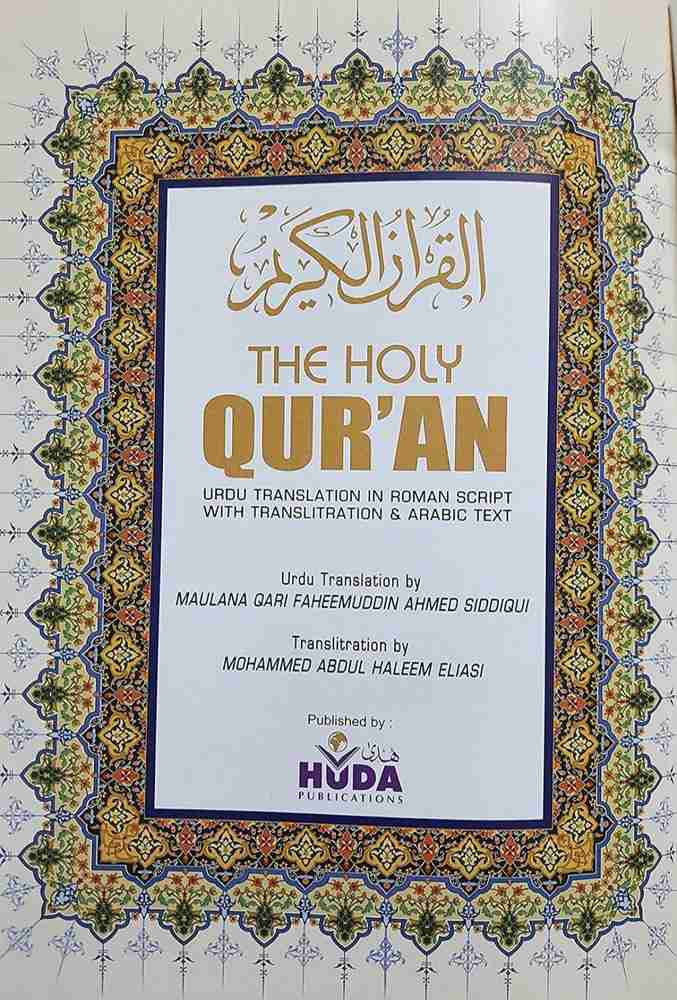 القرآن الكريم
THE HOLY
QUR'AN
URDU TRANSLATION IN ROMAN SCRIPT
WITH TRANSLITRATION & ARABIC TEXT
Urdu Translation by
MAULANA QARI FAHEEMUDDIN AHMED SIDDIQUI
Translitration by
MOHAMMED ABDUL HALEEM ELIASI
Published by :
هدى
HUDA
PUBLICATIONS